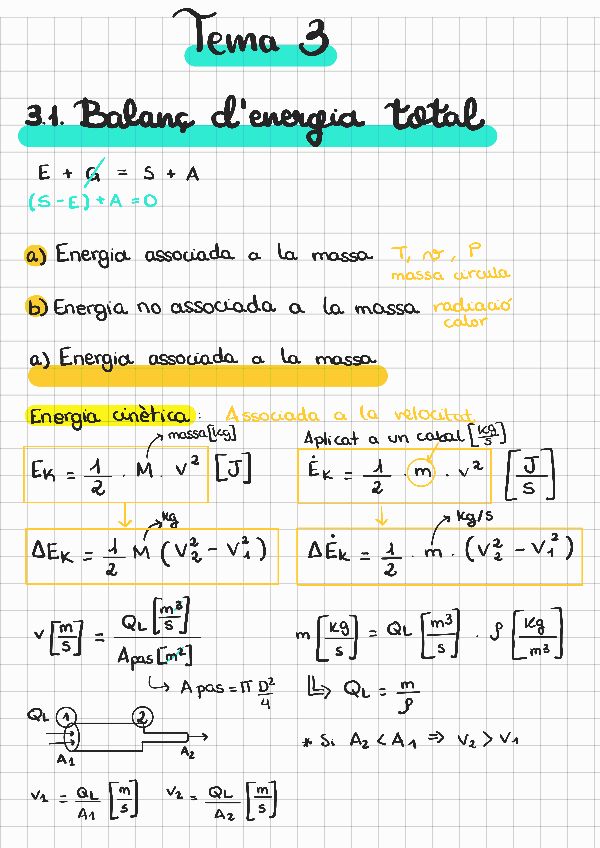 Tema 3
3.1. Balanç d'energia total
E + G = S + A
(S - E) + A = 0
a) Energia associada a la massa T, v, P
massa circula
b) Energia no associada a la massa radiació
calor
a) Energia associada a la massa
Energia cinètica: Associada a la velocitat
massa [kg]
Aplicat a un cabal [kg/s]
EK = 1/2 · M · v² [J]
ĖK = 1/2 · m · v² [J/s]
kg
kg/s
ΔEK = 1/2 M (V₂² - V₁²)
ΔĖK = 1/2 · m · (V₂² - V₁²)
v [m/s] = QL [m³/s] / Apas [m²]
m [kg/s] = QL [m³/s] · ρ [kg/m³]
↳ Apas = π D²/4
↳ QL = m/ρ
QL 1 2
A1 A2
* Si A₂ < A₁ ⇒ v₂ > v₁
v₁ = QL/A1 [m/s] v₂ = QL/A2 [m/s]